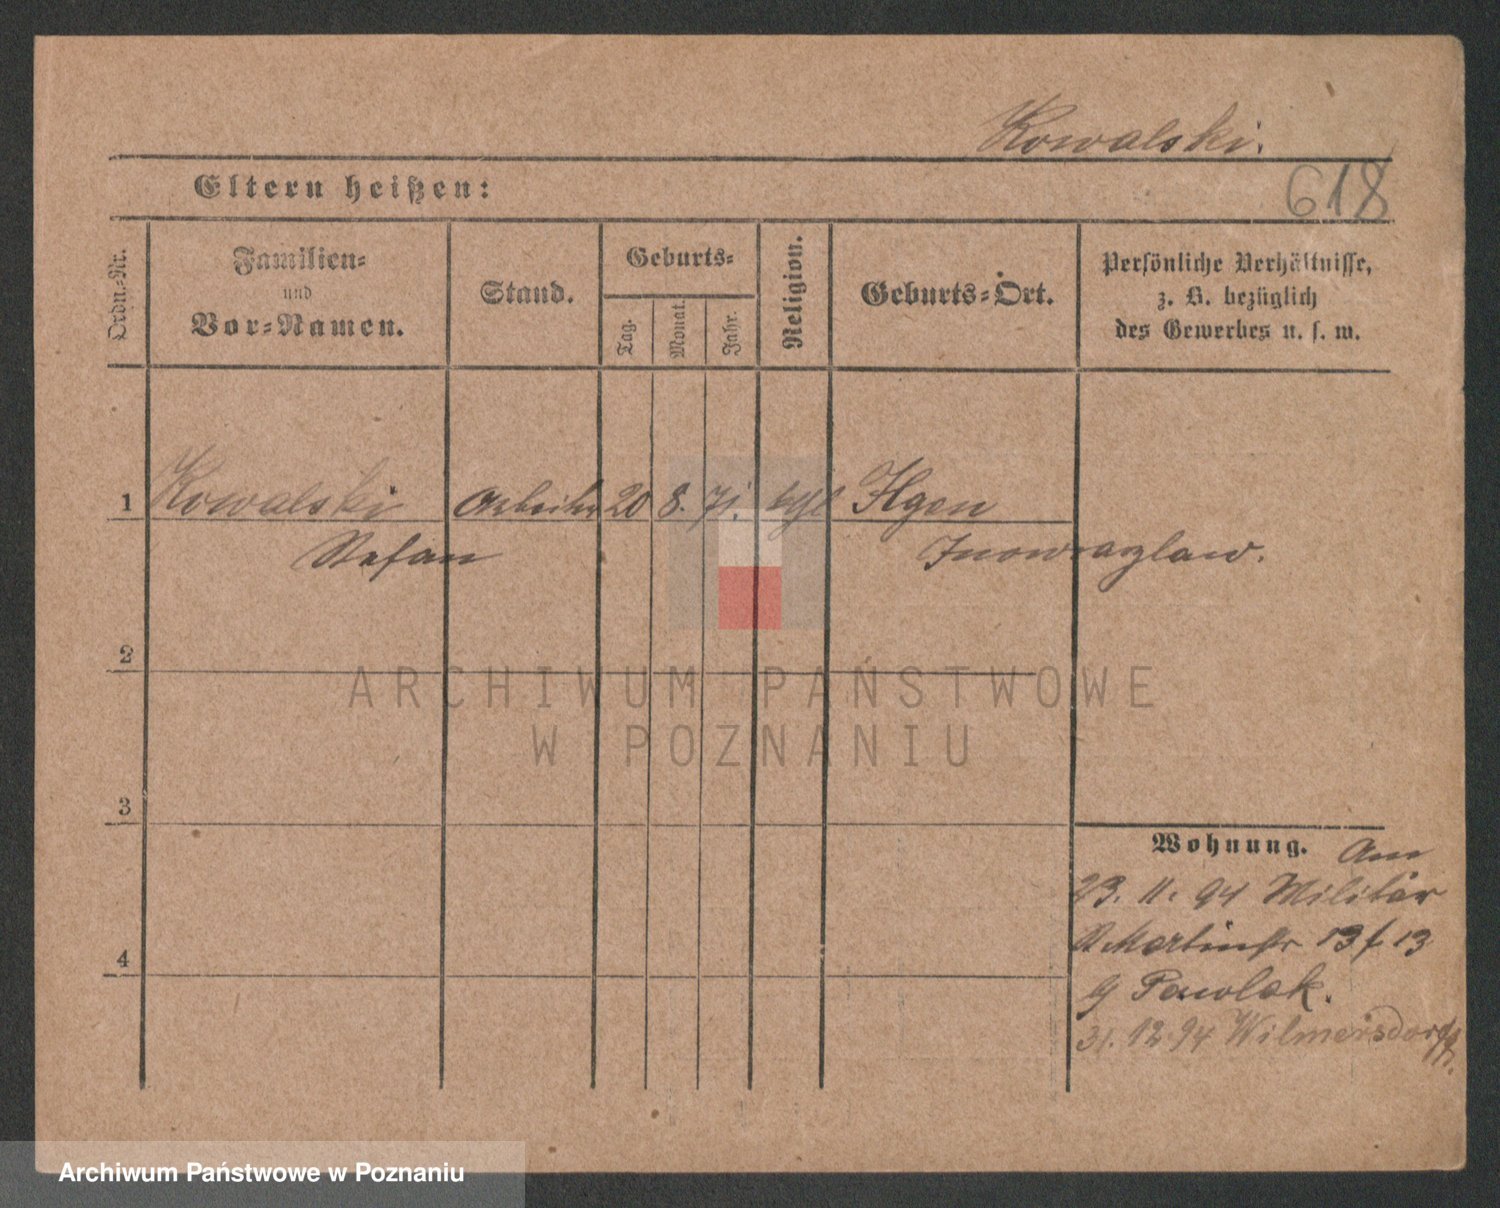 Kowalski.
Eltern heißen:
618
Ordn.-Nr.
Familien-
und
Vor-Namen.
Stand.
Geburts-
Tag.
Monat.
Jahr.
Religion.
Geburts-Ort.
Persönliche Verhältnisse,
z. B. bezüglich
des Gewerbes u. s. w.
1 Kowalski Arbeiter 20 8. 71. kgl Ilgen
Stefan Inowrazlaw.
2
3
4
Wohnung. Am
23. 11. 94 Militär
St Martinstr 13 f 13
Pawlak.
31. 12 94 Wilmersdorf
ARCHIWUM PAŃSTWOWE
W POZNANIU
Archiwum Państwowe w Poznaniu